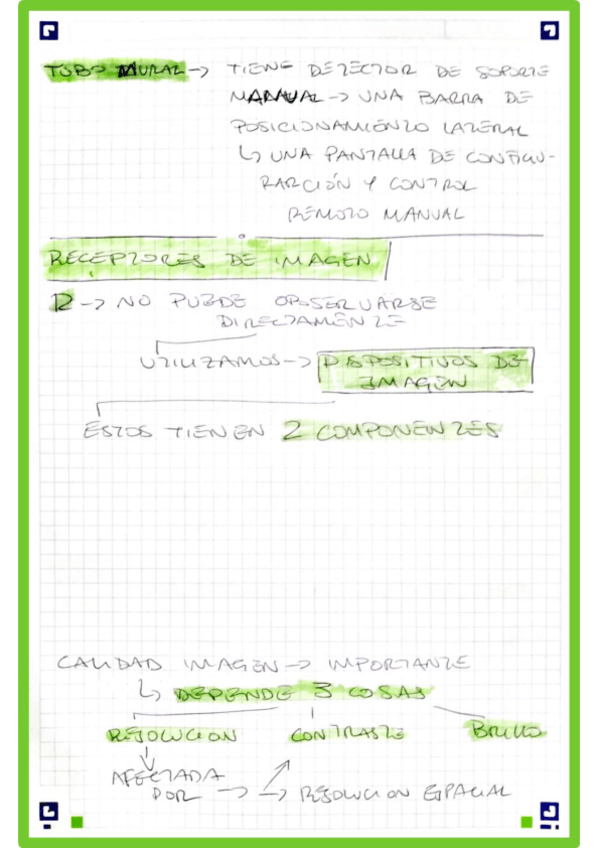 TUBO MURAL -> TIENE DETECTOR DE SOPORTE
MANUAL -> UNA BARRA DE
POSICIONAMIENTO LATERAL
↳ UNA PANTALLA DE CONFIGU-
RARCIÓN Y CONTROL
REMOTO MANUAL
RECEPTORES DE IMAGEN
-> NO PUEDE OPOSERUARSE
DIRECTAMENTE
UTILIZAMOS -> DISPOSITIVOS DE
IMAGEN
ESTOS TIENEN 2 COMPONENTES
CALIDAD IMAGEN -> IMPORTANTE
↳ DEPENDE 3 COSAS
RESOLUCION CONTRASTE BRILLO
AFECTADA
POR -> -> RESOLUCION ESPACIAL